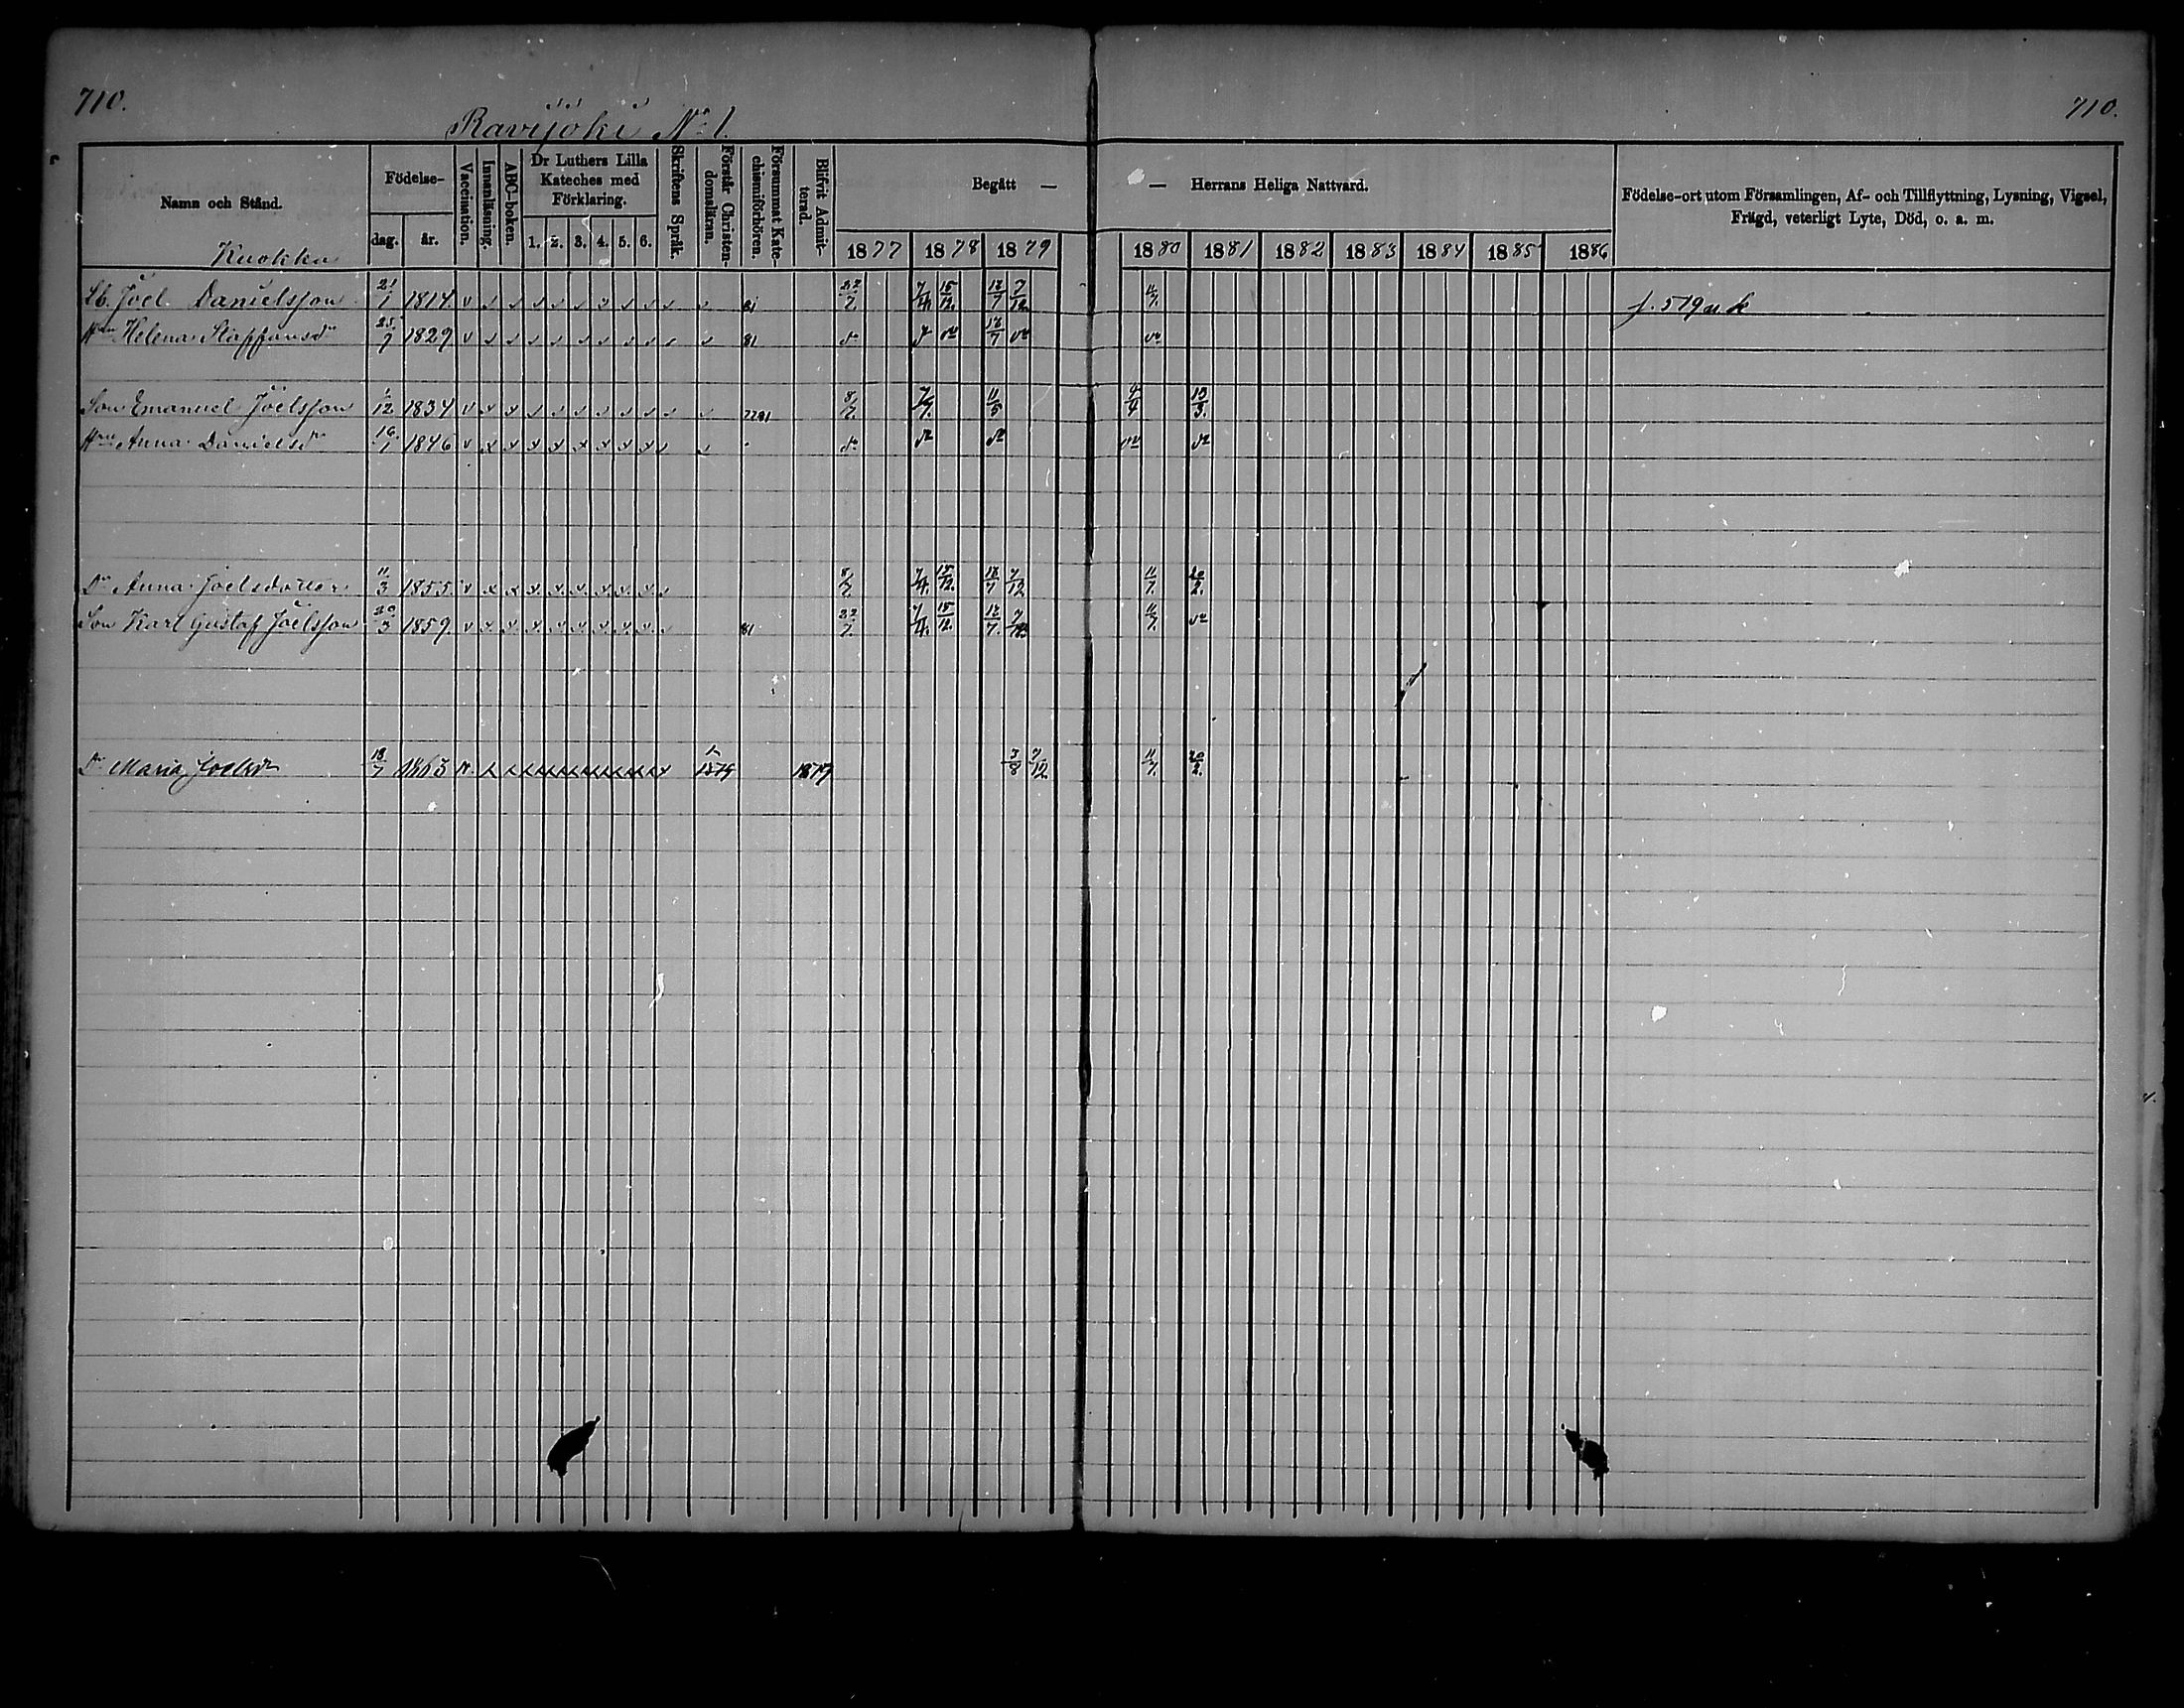 710.
710.
Ravijoki No 1.
Namn och Stånd.
Födelse-
dag. år.
Vaccination.
Innanläsning.
ABC-boken.
Dr Luthers Lilla Kateches med Förklaring.
1. 2. 3. 4. 5. 6.
Skriftens Språk.
Förstår Christendomsläran.
Försummat Katechismiförhören.
Blifvit Admitterad.
Begått — — Herrans Heliga Nattvard.
1877 1878 1879 1880 1881 1882 1883 1884 1885 1886
Födelse-ort utom Församlingen, Af- och Tillflyttning, Lysning, Vigsel,
Frägd, veterligt Lyte, Död, o. a. m.
Kuokka
Lb. Joel Danielsson 21/1 1814 81 22/7 7/4 15/12 13/7 7/12 11/7
Hru Helena Staffansdr 25/9 1829 81 do
Son Emanuel Joelsson 1/12 1834 8/7 7/7 11/5 4/4 13/3
Hru Anna Danielsdr 1846 do do do do do
Dr Anna Joelsdotter 11/3 1855 8/7 7/4 15/12 13/7 7/12 11/7 20/2
Son Karl Gustaf Joelsson 20/3 1859 81 22/7 7/4 15/12 13/7 7/12 11/7 do
Dr Maria Joelsdr 18/7 1863 1879 1879 3/8 7/12 11/7 20/2